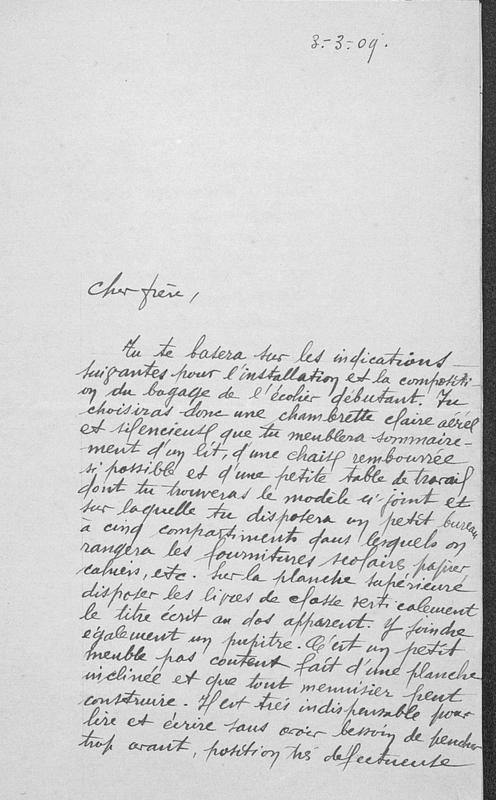 3-3-09.
Cher frère,
Tu te basera sur les indications
suivantes pour l'installation et la compositi-
on du bagage de l'écolier débutant. Tu
choisiras donc une chambrette claire aérée
et silencieuse que tu meublera sommaire-
ment d'un lit, d'une chaise rembourrée
si possible et d'une petite table de travail
dont tu trouveras le modèle ci-joint et
sur laquelle tu disposera un petit bureau
a cinq compartiments dans lesquels on
rangera les fournitures scolaires papier
cahiers, etc. Sur la planche supérieure
disposer les livres de classe verticalement
le titre écrit au dos apparent. Y joindre
également un pupitre. C'est un petit
meuble pas content fait d'une planche
inclinée et que tout menuisier peut
construire. Il est très indispensable pour
lire et écrire sans avoir besoin de pencher
trop avant, position très defectueuse